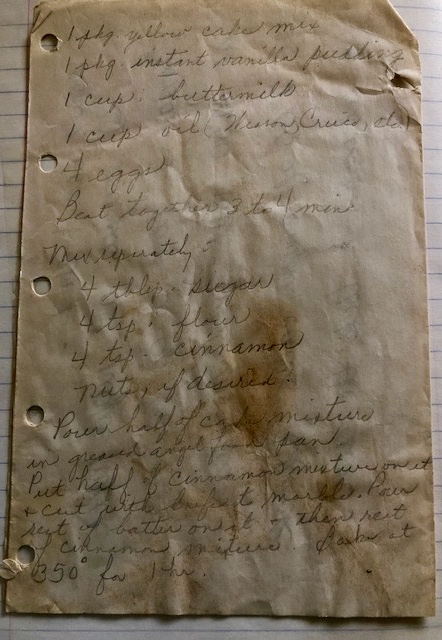 1 pkg. yellow cake mix
1 pkg. instant vanilla pudding
1 cup. buttermilk
1 cup oil (Wesson, Crisco, etc.)
4 eggs
Beat together 3 to 4 min.
Mix seperately:
4 tblsp. sugar
4 tsp. flour
4 tsp. cinnamon
nuts, if desired.
Pour half of cake mixture
in greased angel food pan.
Put half of cinnamon mixture on it
+ cut with knife to marble. Pour
rest of batter on it + then rest
of cinnamon mixture. Bake at
350° for 1 hr.